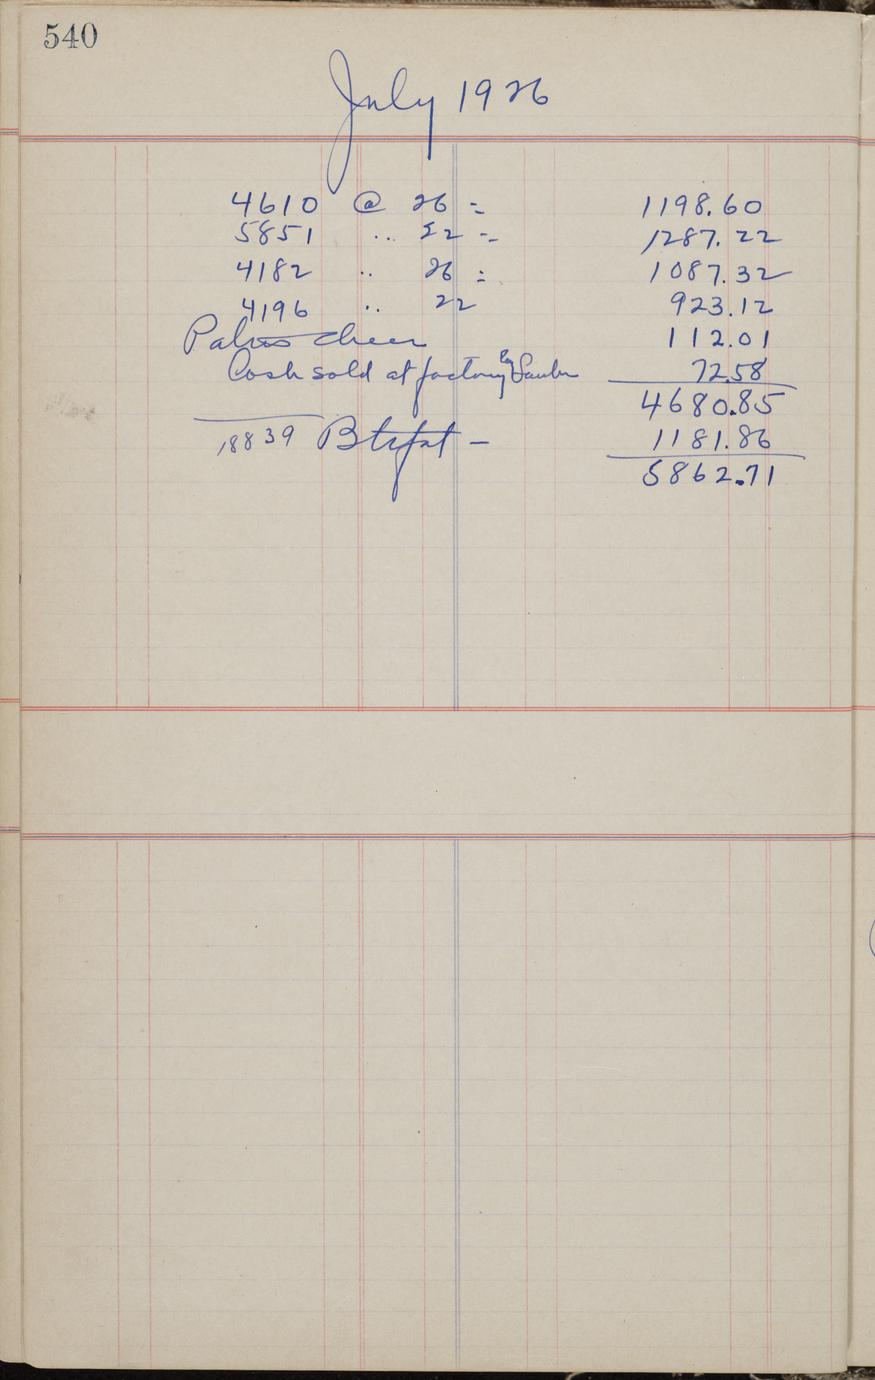 540
July 1926
4610 @ 26 = 1198.60
5851 .. 22 = 1287.22
4182 .. 26 = 1087.32
4196 .. 22 923.12
112.01
Cash sold at factory By 72.58
4680.85
18839 Btrfat - 1181.86
5862.71